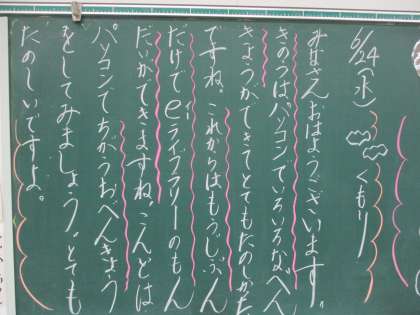 6/24(水) くもり
みなさんおはようございます。
きのうはパソコンでいろいろなべん
きょうができてとてもたのしかった
ですね。これからはもうじぶん
だけでeライブラリーのもん
だいができますね。こんどは
パソコンでちがうおべんきょう
をしてみましょう。とても
たのしいですよ。